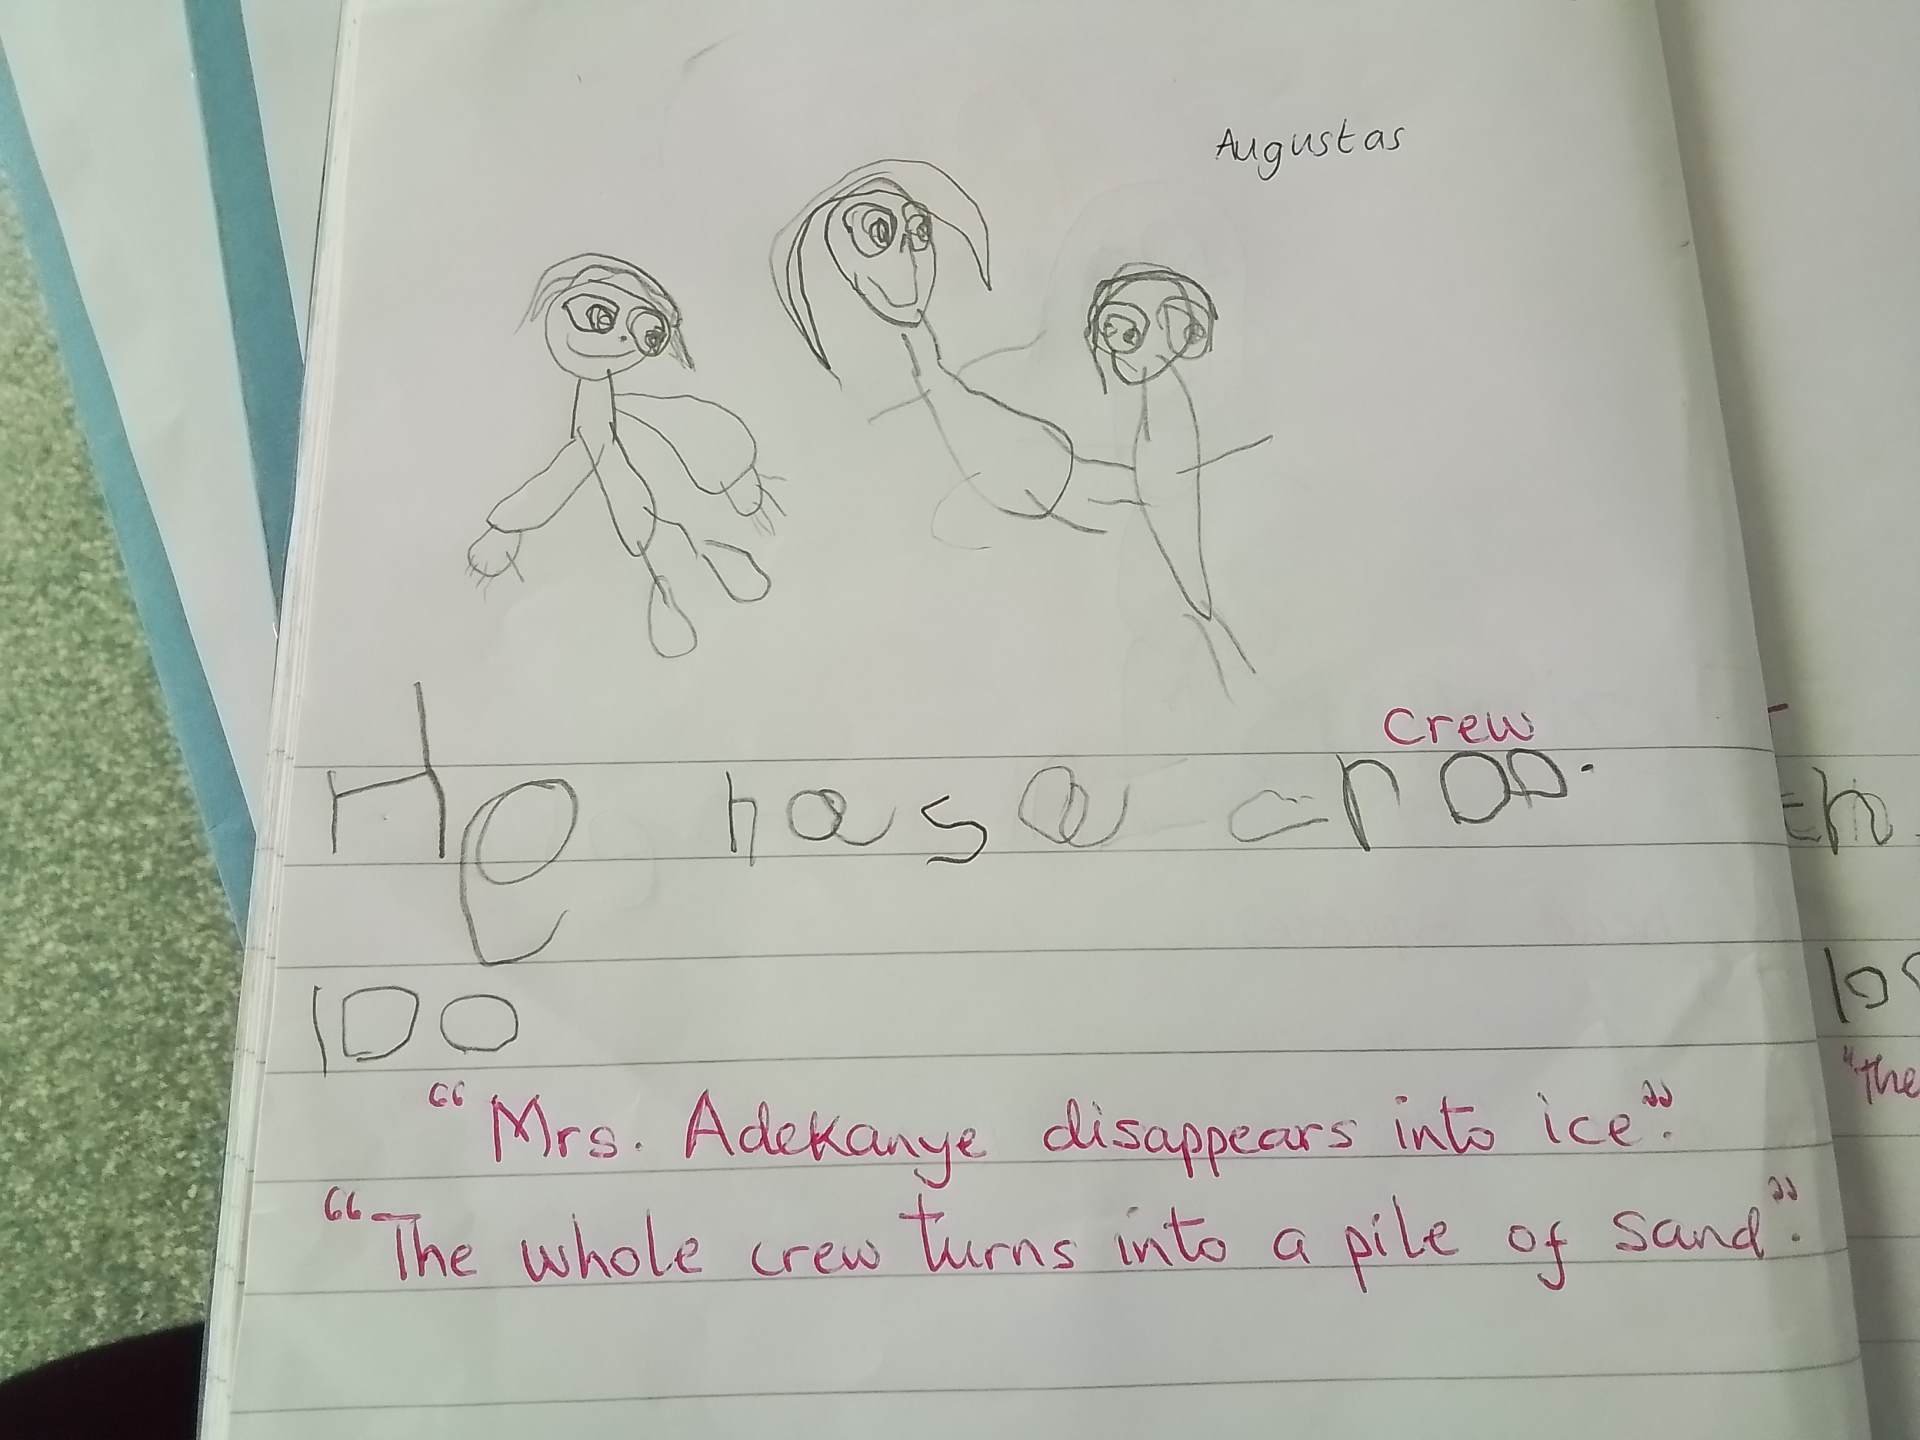 Augustas
crew
He has a croo.
100
"Mrs. Adekanye disappears into ice".
"The whole crew turns into a pile of sand".
"The